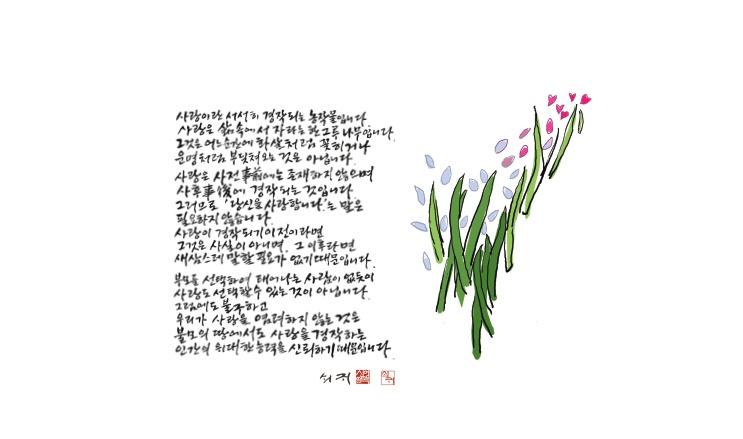 사랑이란 서서히 경작되는 농작물입니다
사랑은 삶속에서 자라는 한그루 나무입니다.
그것은 어느순간에 화살처럼 꽂히거나
운명처럼 부딪쳐오는 것은 아닙니다.
사랑은 사전事前에는 존재하지 않으며
사후事後에 경작되는 것입니다.
그러므로 '당신을 사랑합니다'는 말은
필요하지 않습니다.
사랑이 경작되기 이전이라면
그것은 사실이 아니며, 그 이후라면
새삼스레 말할 필요가 없기 때문입니다.
부모를 선택하여 태어나는 사람이 없듯이
사랑도 선택할 수 있는 것이 아닙니다.
그럼에도 불구하고
우리가 사랑을 염려하지 않는 것은
불모의 땅에서도 사랑을 경작하는
인간의 위대한 능력을 신뢰하기 때문입니다.